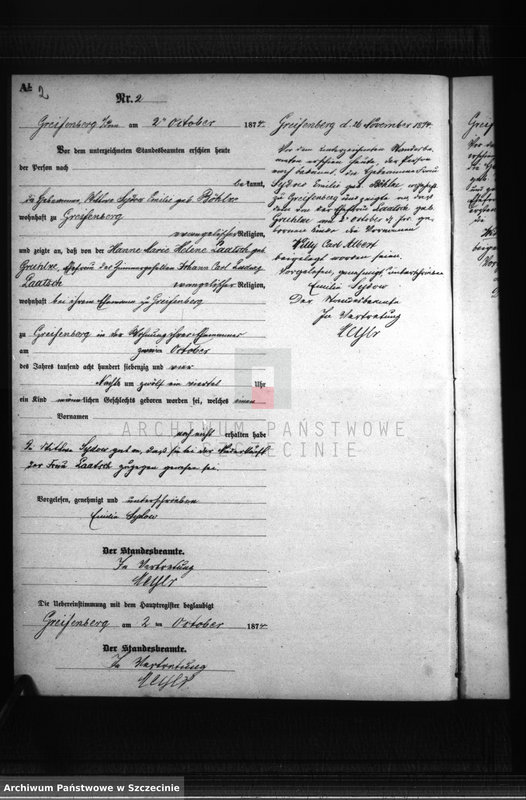 A
2
Nr. 2
Greifenberg i/Pom am 2 October 1874.
Vor dem unterzeichneten Standesbeamten erschien heute
der Person nach
be kannt,
die Hebamme, Wittwe Sydow Emilie geb Böhlke
wohnhaft zu Greifenberg
evangelischer Religion,
und zeigte an, daß von der Hanne Marie Helene Laatsch geb
Ehefrau des Zimmergesellen Johann Carl Ludwig
Laatsch evangelischer Religion,
wohnhaft bei ihrem Ehemann zu Greifenberg
zu Greifenberg in der Wohnung ihres Ehemannes
am zweiten October
des Jahres tausend acht hundert siebenzig und vier
Nachts um zwölf ein viertel Uhr
ein Kind männlichen Geschlechts geboren worden sei, welches einen
Vornamen
noch nicht erhalten habe
Sydow daß sie bei der Niederkunft
der Frau Laatsch zugegen gewesen sei.
Vorgelesen, genehmigt und unterschrieben
Emilie Sydow
Der Standesbeamte.
In Vertretung
Die Uebereinstimmung mit dem Hauptregister beglaubigt
Greifenberg am 2 ten October 1874.
Der Standesbeamte.
In Vertretung
Greifenberg d. 26 November 1874.
Vor dem unterzeichneten Standesbe-
amten erschien heute, der Person
nach bekannt, die Hebamme Frau
Sydow Emilie geb. Böhlke, wohnhaft
zu Greifenberg und zeigte an, daß
dem von der Ehefrau Laatsch geb.
am 2 October d. J. ge-
borenen Kinde die Vornamen
Willy Carl Albert
beigelegt worden seien.
Vorgelesen, genehmigt, unterschrieben
Emilie Sydow
Der Standesbeamte
In Vertretung
ARCHIWUM PAŃSTWOWE
W SZCZECINIE
Archiwum Państwowe w Szczecinie